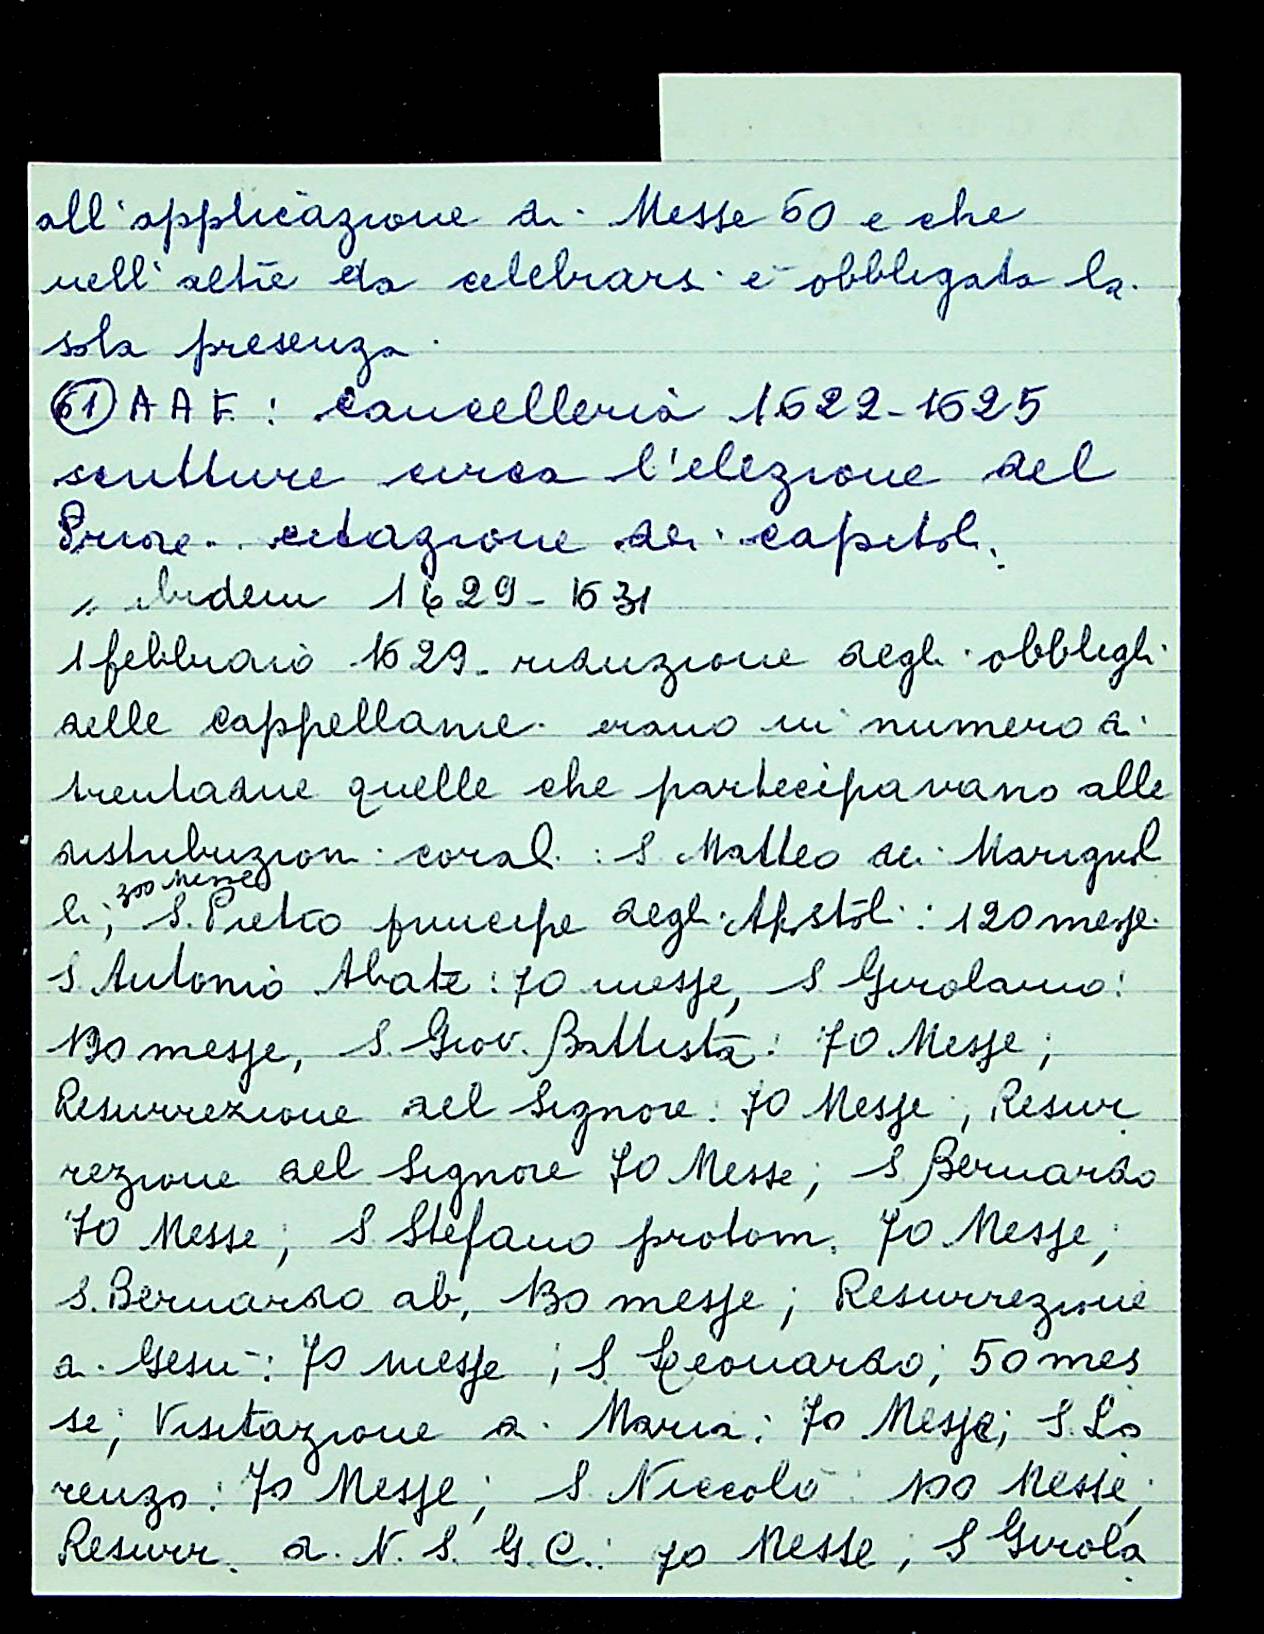 all'applicazione di Messe 60 e che
nell'altre da celebrarsi è obbligata la
sola presenza.
(61) A A F. : Cancelleria 1622-1625
scritture circa l'elezione del
Priore. citazione dei capitoli.
ibidem 1629-1631
1 febbraio 1629. riduzione degli obblighi
delle cappellanie. erano in numero di
trentadue quelle che partecipavano alle
distribuzioni corali : S. Matteo dei Marignol
li; 300 Messe S. Pietro principe degli Apostoli : 120 messe
S Antonio Abate : 70 messe, S Girolamo :
130 messe, S. Giov. Battista : 70 Messe ;
Resurrezione del Signore : 70 Messe ; Resur
rezione del Signore 70 Messe ; S Bernardo
70 Messe ; S Stefano protom. 70 Messe ;
S. Bernardo ab, 130 messe ; Resurrezione
di Gesù : 70 messe ; S Leonardo ; 50 mes
se ; Visitazione di Maria : 70 Messe ; S. Lo
renzo : 70 Messe ; S Niccolò : 100 Messe ;
Resurr. di N. S. G. C. : 70 Messe ; S Girola